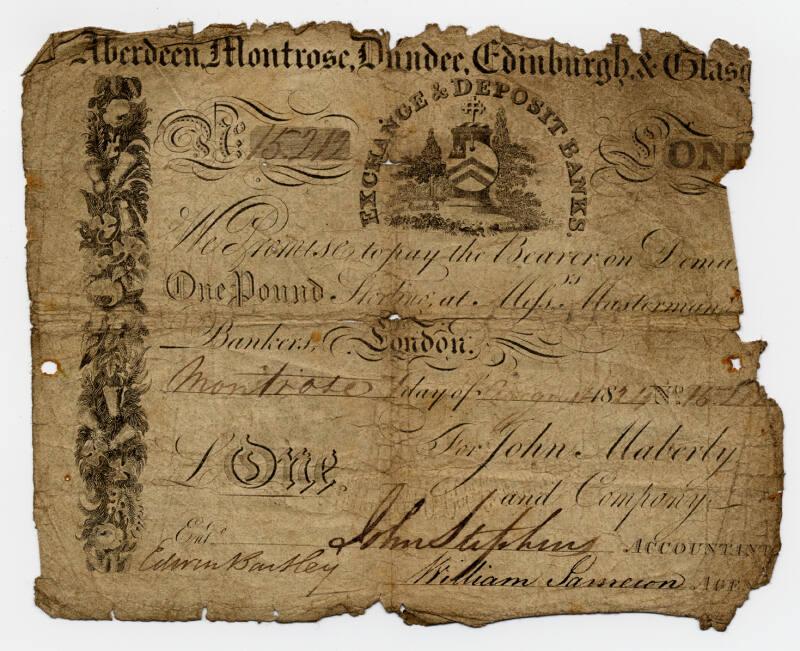 Aberdeen, Montrose, Dundee, Edinburgh, & Glasg
EXCHANGE & DEPOSIT BANKS.
No. 15212
£ONE
We Promise to pay the Bearer on Dema
One Pound Sterling, at Messrs Masterman
Bankers, London.
Montrose day of 182 No. 15
£ One
For John Maberly
and Company
Entd.
John Stephens ACCOUNTANT
Edwin Bartley
William AGEN